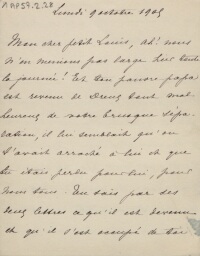 Lundi 9 octobre 1905
Mon cher petit Louis, ah! nous
n'en menions pas large hier toute
la journée! Et ton pauvre papa
est revenu de Dreux tout mal-
heureux de votre brusque sépa-
ration, il lui semblait qu'on
t'avait arraché à lui et que
tu étais perdu pour lui, pour
nous tous. Tu sais par ses
deux lettres ce qu'il est devenu
et qu'il s'est occupé de toi.